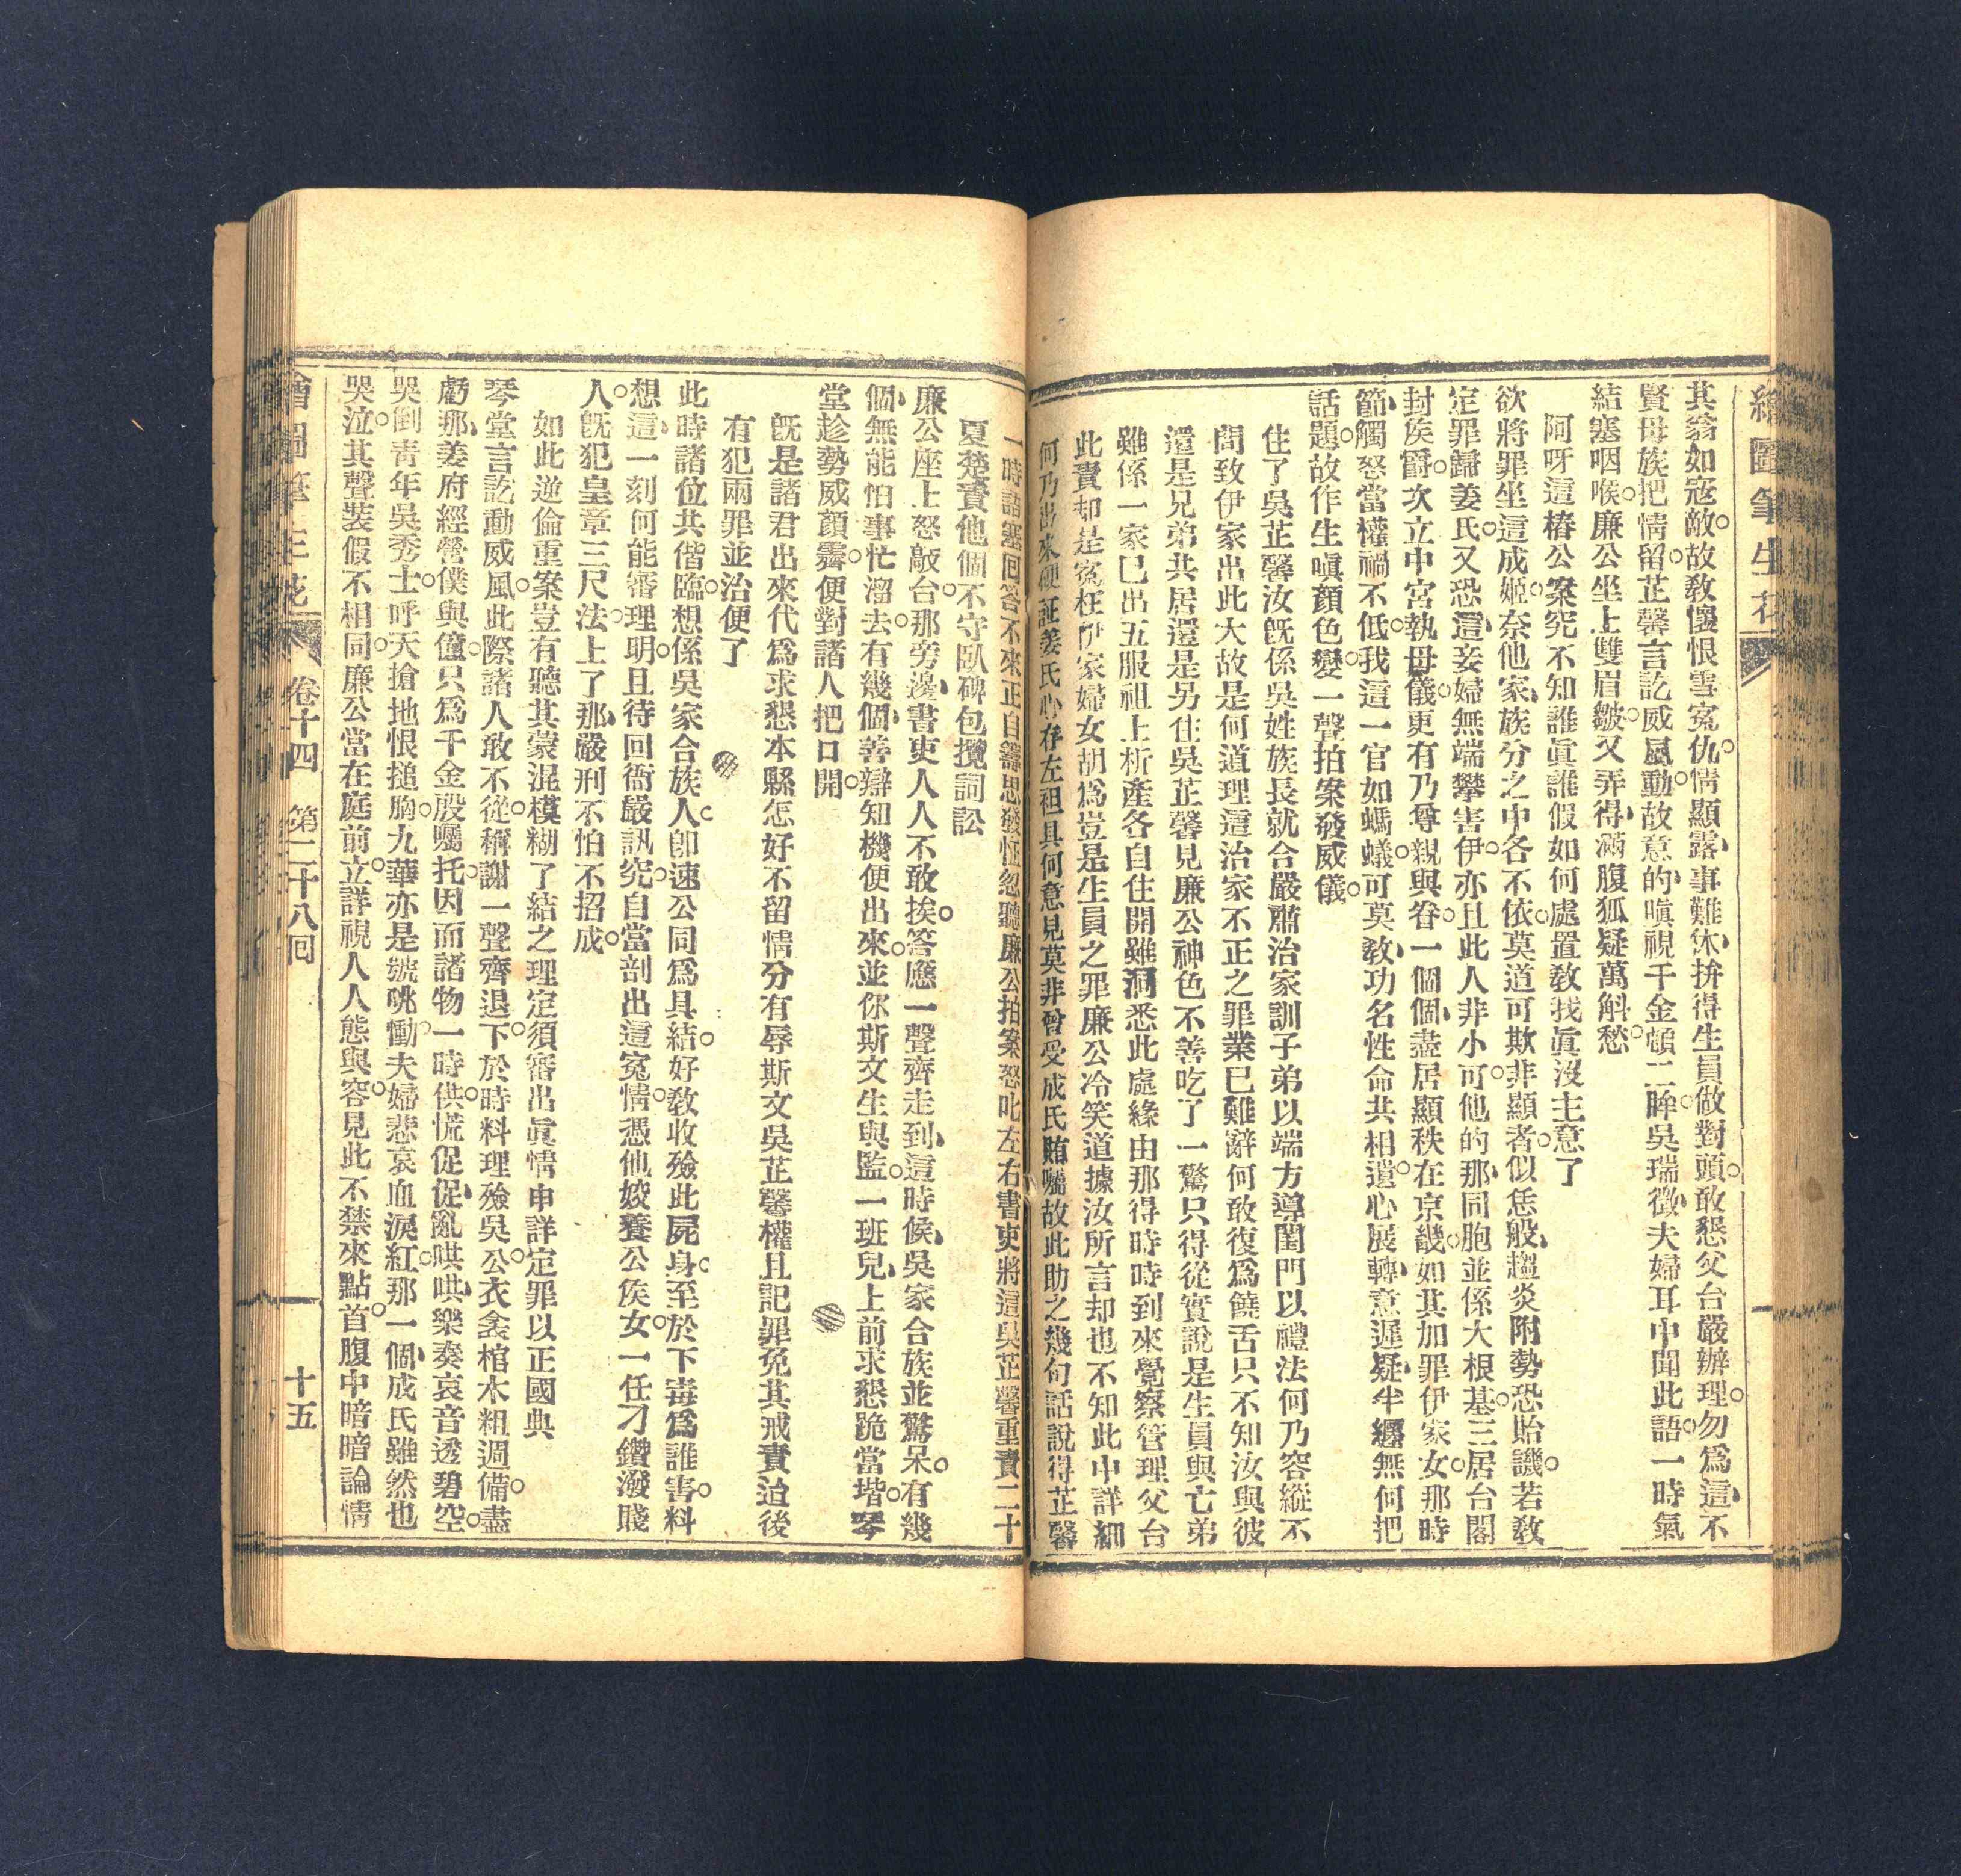 繪圖筆生花
其翁如寇敵故敎懷恨雪寃仇情顯露事難休拚得生員做對頭敢懇父台嚴辦理勿爲這不
賢母族把情留芷馨言訖威風動故意的嗔視千金頓二眸吳瑞徵夫婦耳中聞此語一時氣
結塞咽喉廉公坐上雙眉皺又弄得滿腹狐疑萬斛愁
阿呀這樁公案究不知誰眞誰假如何處置敎我眞沒主意了
欲將罪坐這成姬奈他家族分之中各不依莫道可欺非顯者似恁般趨炎附勢恐貽譏若敎
定罪歸姜氏又恐這妾婦無端攀害伊亦且此人非小可他的那同胞並係大根基三居台閣
封侯爵次立中宮執母儀更有乃尊親與眷一個個盡居顯秩在京畿如其加罪伊家女那時
節觸怒當權禍不低我這一官如螞蟻可莫敎功名性命共相遺心展轉意遲疑半纙無何把
話題故作生嗔顏色變一聲拍案發威儀
住了吳芷馨汝旣係吳姓族長就合嚴肅治家訓子弟以端方導閨門以禮法何乃容縱不
問致伊家出此大故是何道理這治家不正之罪業已難辭何敢復爲饒舌只不知汝與彼
還是兄弟共居還是另住吳芷馨見廉公神色不善吃了一驚只得從實說是生員與亡弟
雖係一家已出五服祖上析產各自住開雖洞悉此處緣由那得時時到來覺察管理父台
此責却是寃枉伊家婦女胡爲豈是生員之罪廉公冷笑道據汝所言却也不知此中詳細
何乃出來硬証姜氏心存左祖具何意見莫非曾受成氏賄囑故此助之幾句話說得芷馨
一時語塞回答不來正自籌思發怔忽聽廉公拍案怒叱左右書吏將這吳芷馨重責二十
夏楚責他個不守臥碑包攬詞訟
廉公座上怒敲台那旁邊書吏人人不敢挨答應一聲齊走到這時候吳家合族並驚呆有幾
個無能怕事忙溜去有幾個善辯知機便出來並你斯文生與監一班兒上前求懇跪當堦琴
堂趁勢威顏霽便對諸人把口開
旣是諸君出來代爲求懇本縣怎好不留情分有辱斯文吳芷馨權且記罪免其戒責迨後
有犯兩罪並治便了
此時諸位共偕臨想係吳家合族人卽速公同爲具結好敎收殮此屍身至於下毒爲誰害料
想這一刻何能審理明且待回衙嚴訊究自當剖出這寃情憑他姣養公侯女一任刁鑽潑賤
人旣犯皇章三尺法上了那嚴刑不怕不招成
如此逆倫重案豈有聽其蒙混模糊了結之理定須審出眞情申詳定罪以正國典
琴堂言訖動威風此際諸人敢不從稱謝一聲齊退下於時料理殮吳公衣衾棺木粗週備盡
虧那姜府經營僕與僮只爲千金殷囑托因而諸物一時供慌促促亂哄哄樂奏哀音透碧空
哭倒靑年吳秀士呼天搶地恨搥胸九華亦是號咷慟夫婦悲哀血淚紅那一個成氏雖然也
哭泣其聲裝假不相同廉公當在庭前立詳視人人態與容見此不禁來點首腹中暗暗論情
繪圖筆生花 卷十四 第二十八回 十五